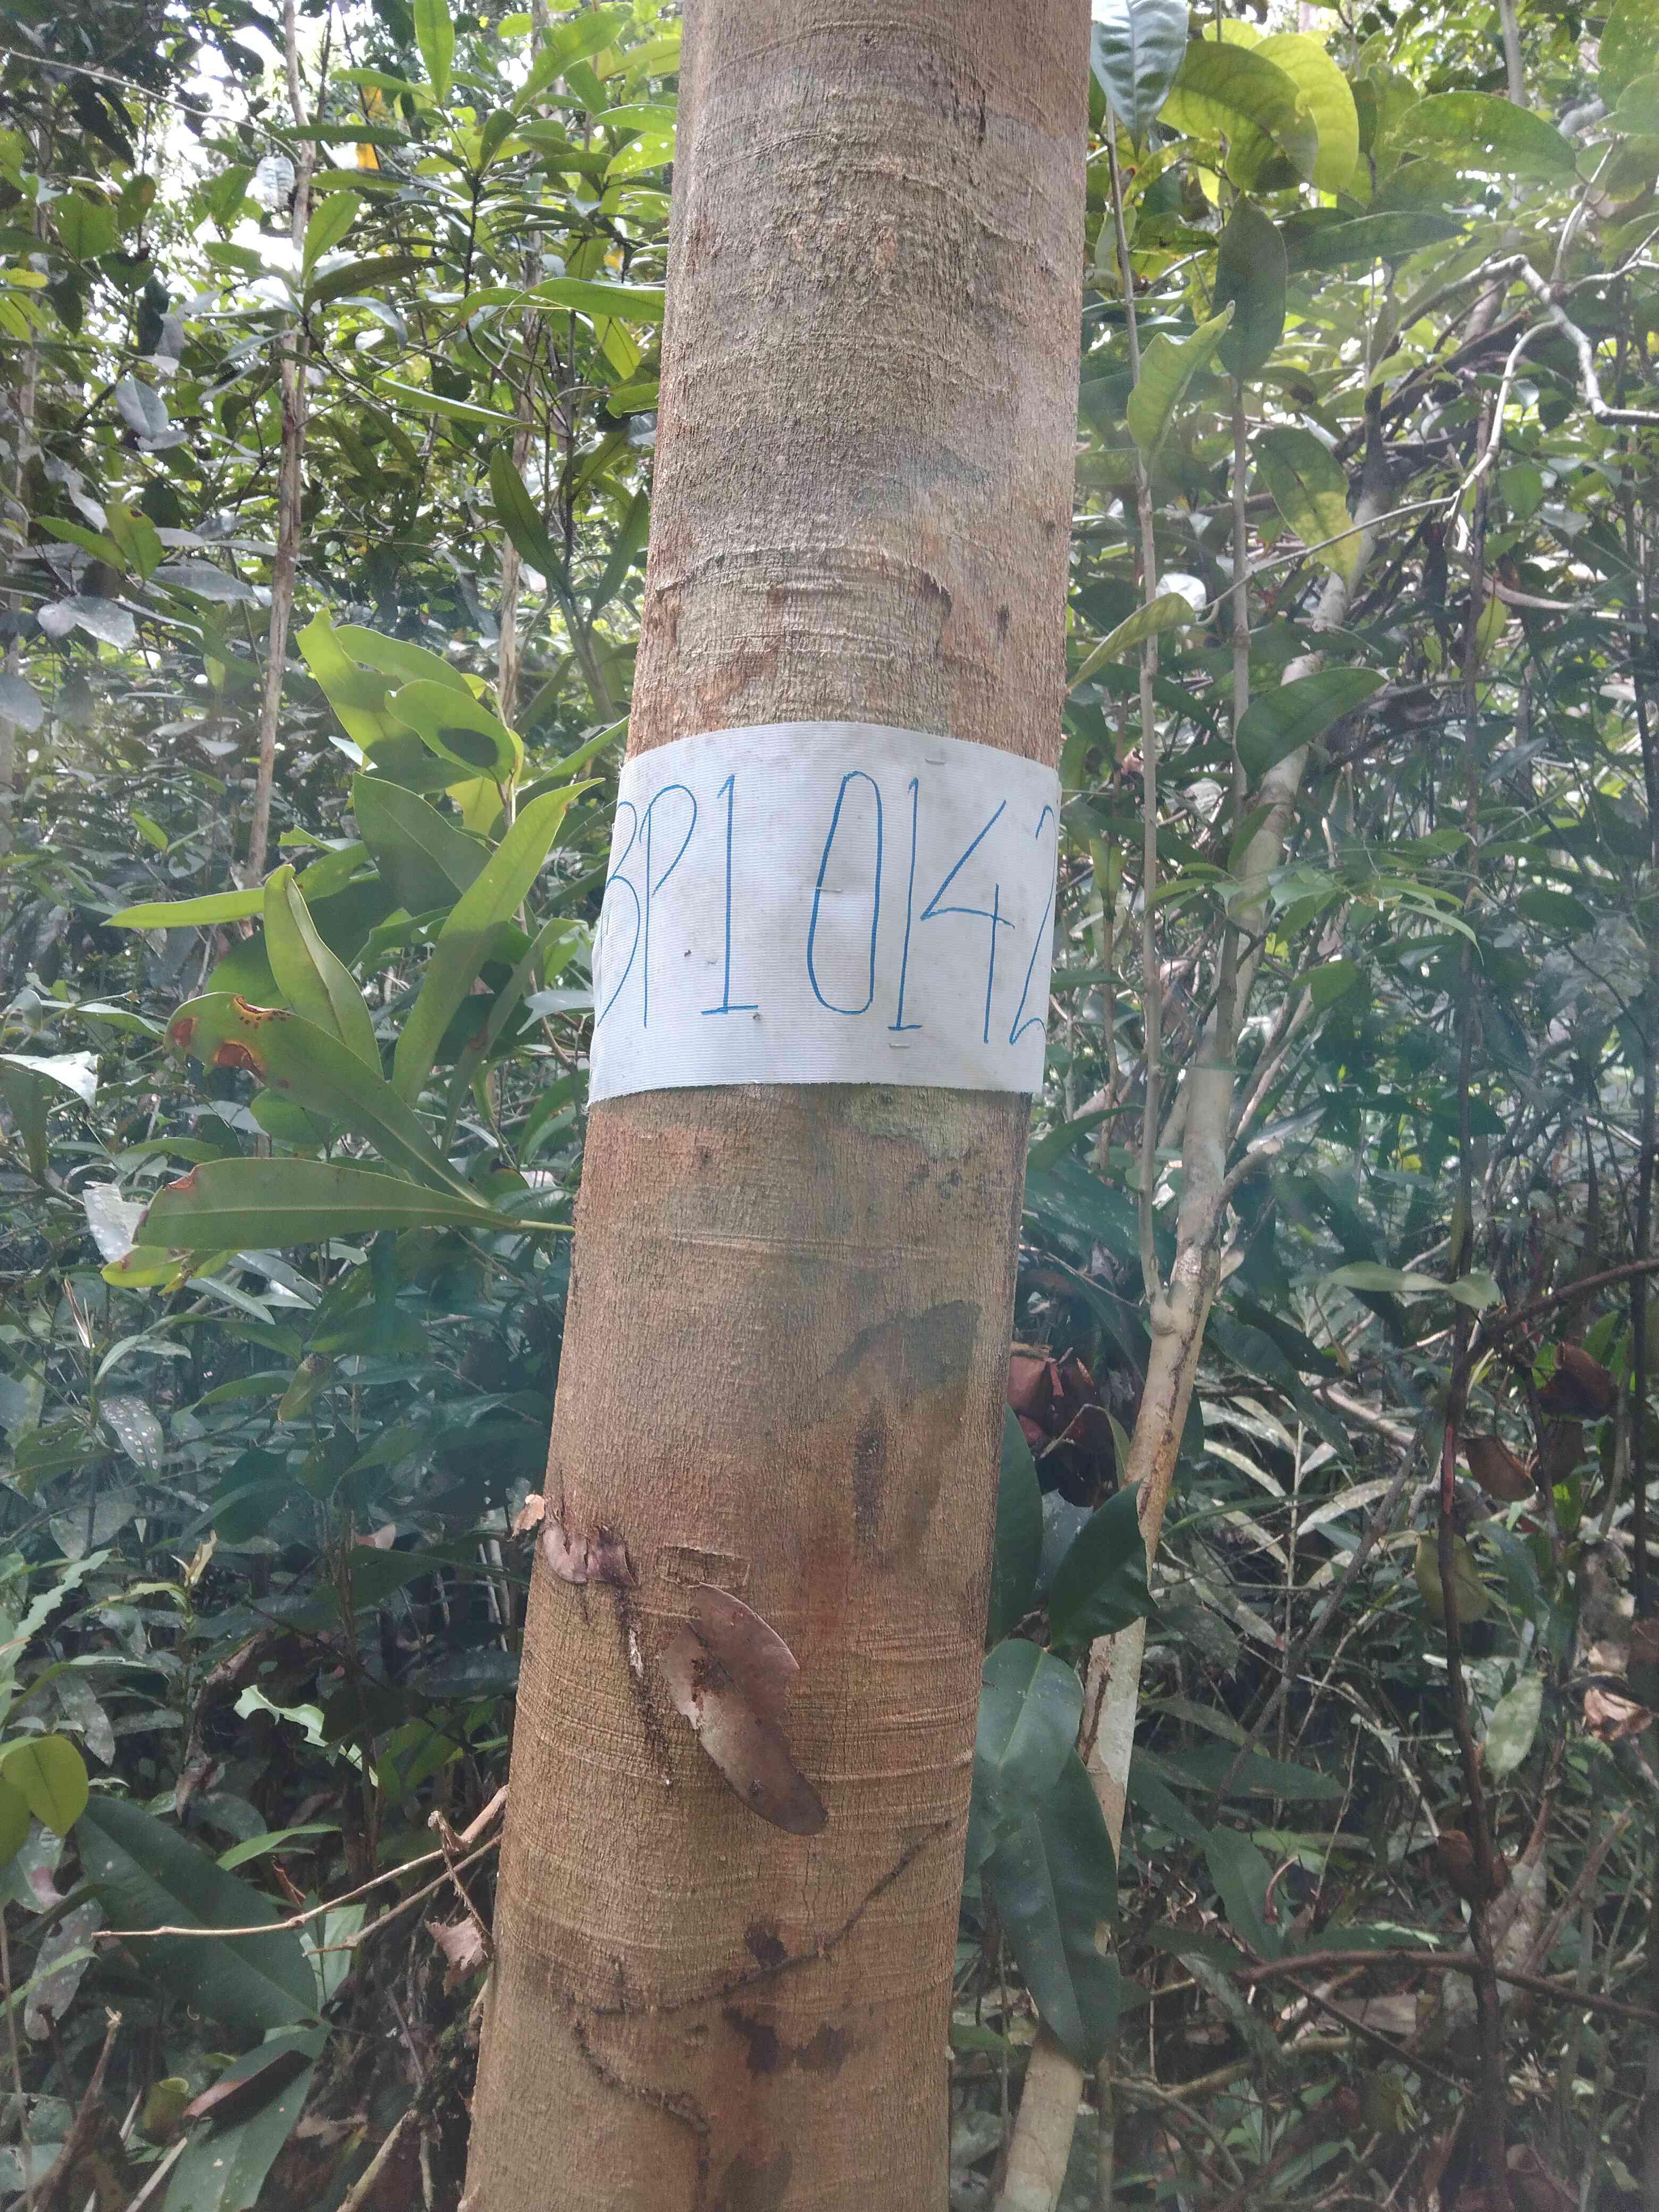 BP1 0142